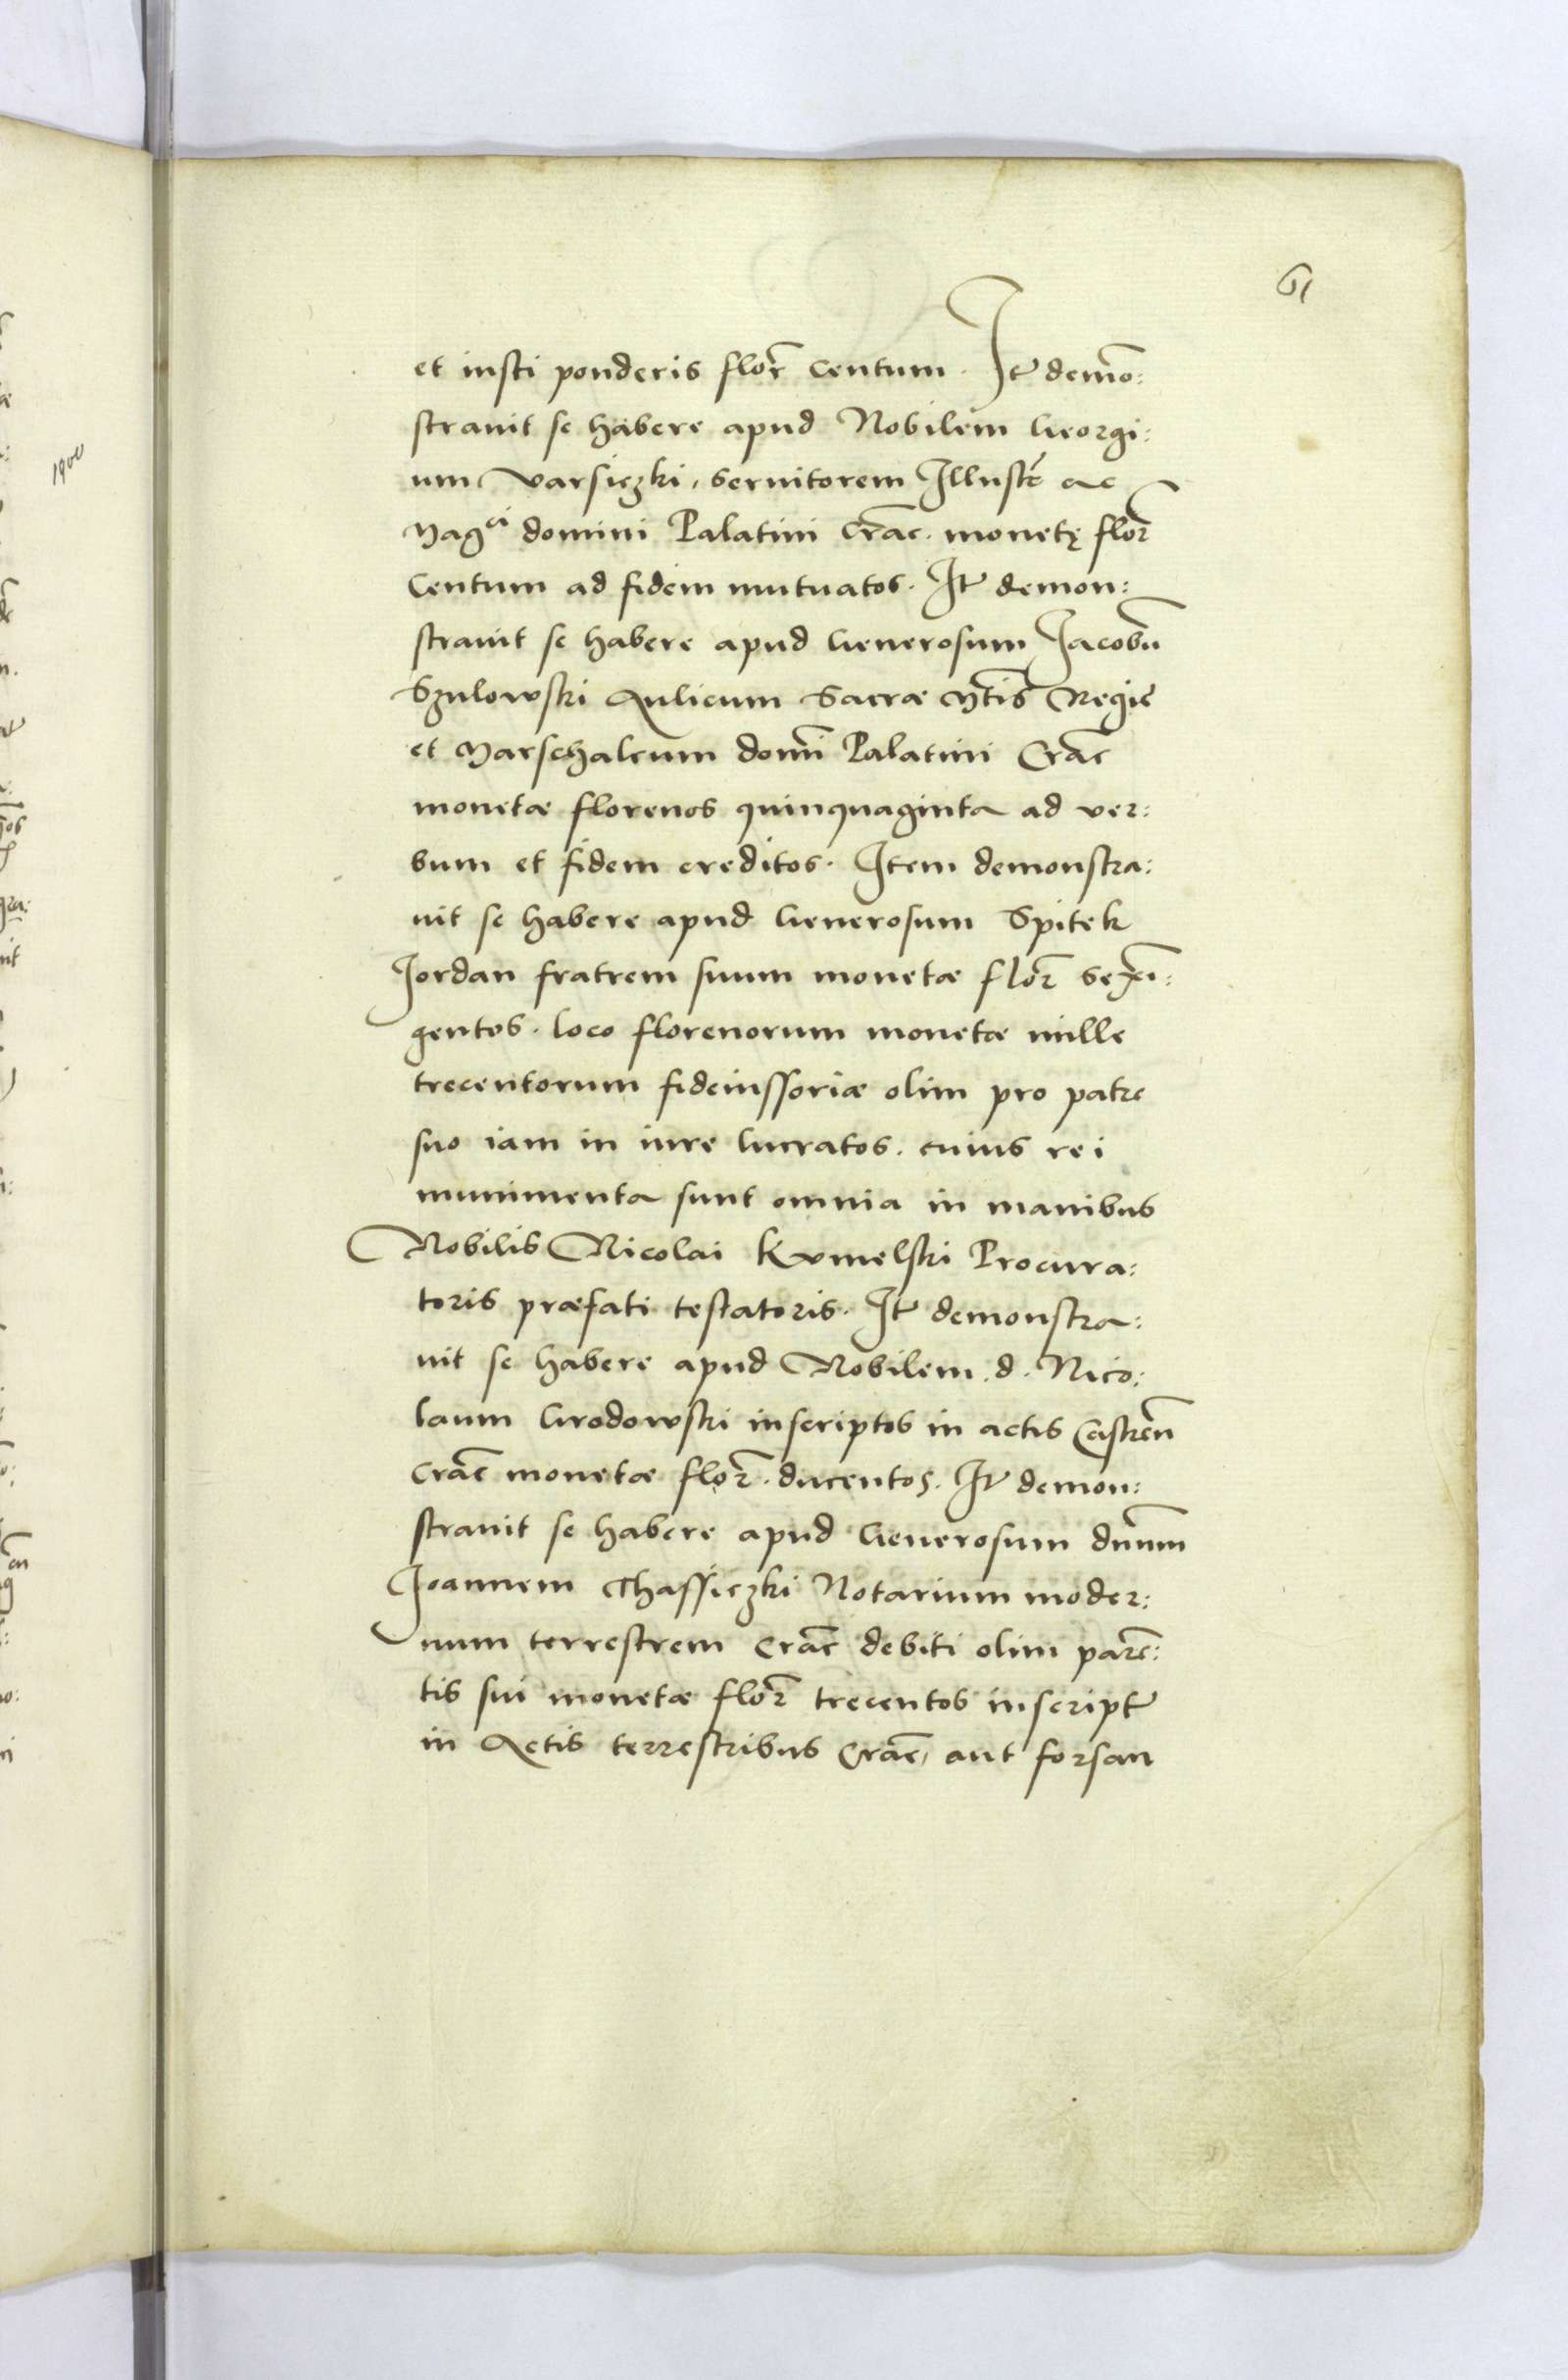 61
et iusti ponderis flor̃ centum. It̃ demõ:
strauit se habere apud Nobilem Georgi:
um Varsiczki, seruitorem Illustr̃ ac
Mag^ci domini Palatini Crac. monetę flor̃
centum ad fidem mutuatos. It̃ demon:
strauit se habere apud Generosum Jacobũ
Szulowski Aulicum Sacræ Mt̃is Regię
et Marschalcum domĩ Palatini Crac̃
monetæ florenos quinquaginta ad ver:
bum et fidem creditos. Item demonstra:
uit se habere apud Generosum Spitek
Jordan fratrem suum monetæ flor̃ sexĩ:
gentos. loco florenorum monetæ mille
trecentorum fideiussoriæ olim pro patre
suo iam in iure lucratos. cuius rei
munimenta sunt omnia in manibus
Nobilis Nicolai Kxmelski Procura:
toris præfati testatoris. It̃ demonstra:
uit se habere apud Nobilem. d. Nico:
laum Grodowski inscriptos in actis Castren̄
Crac̃ monetæ flor̃. ducentos. It̃ demon:
strauit se habere apud Generosum dnũm
Joannem Chassiczki Notarium moder:
num terrestrem Crac̃ debiti olim parẽ:
tis sui monetæ flor̃ trecentos inscript̃
in Actis terrestribus Crac̃, aut forsan
1900